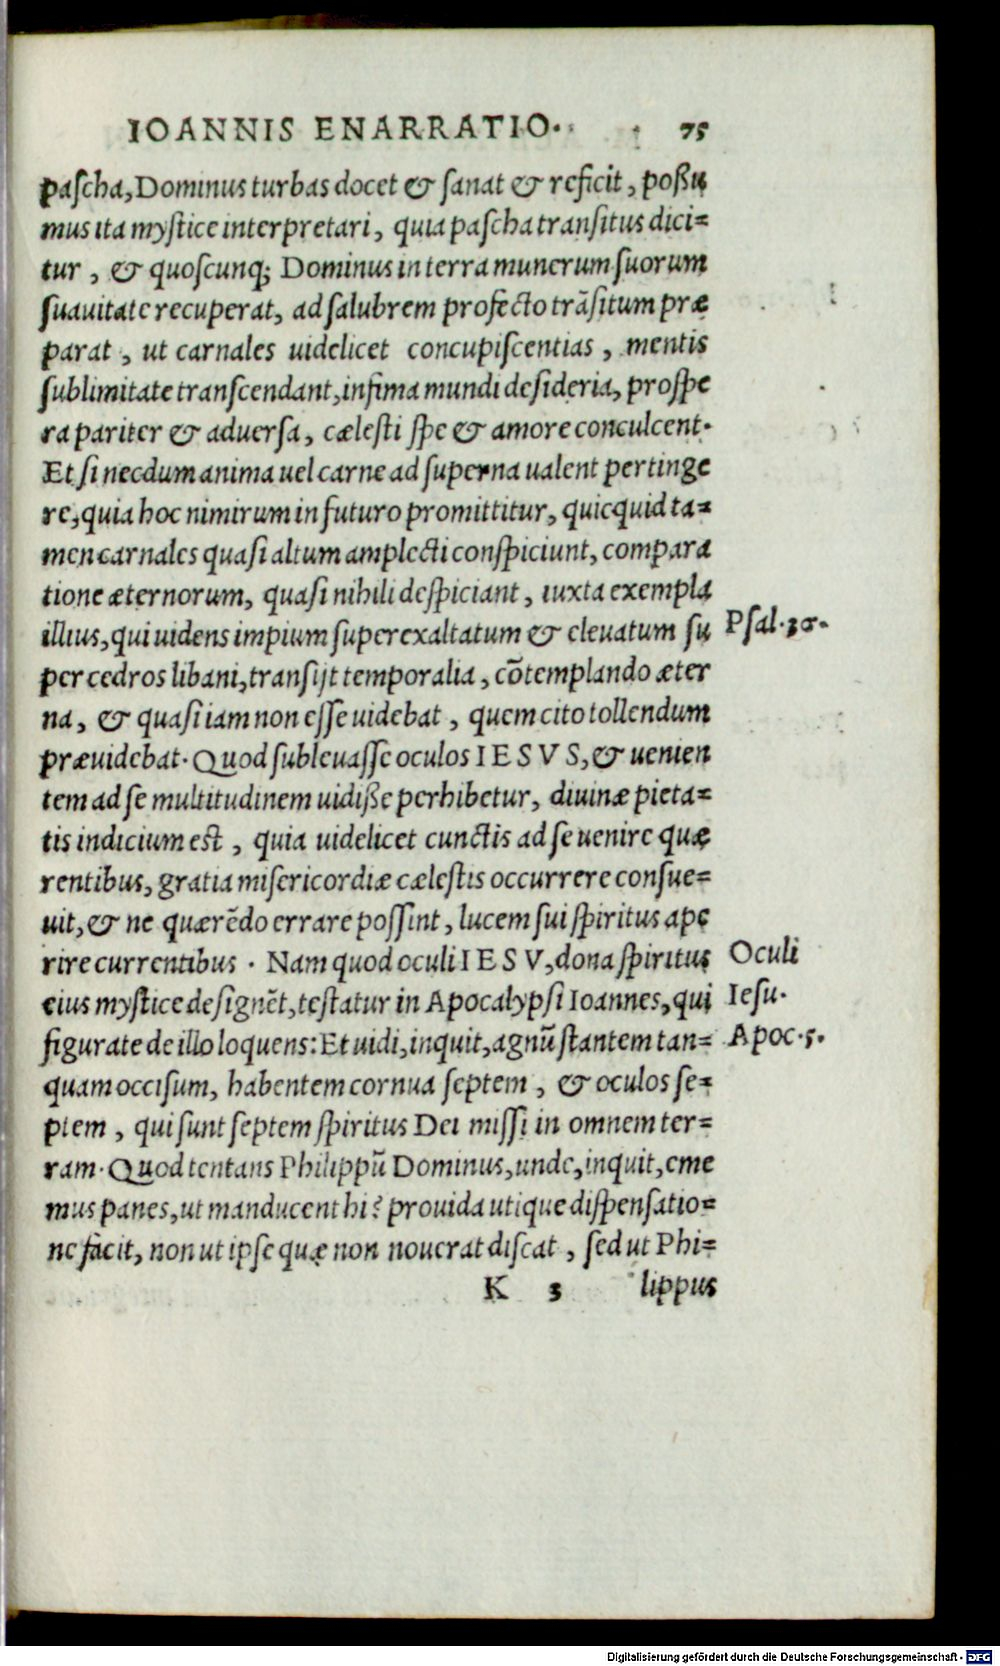 IOANNIS ENARRATIO. 75
pascha, Dominus turbas docet & sanat & reficit, possu
mus ita mystice interpretari, quia pascha transitus dici=
tur, & quoscunq; Dominus in terra munerum suorum
suauitate recuperat, ad salubrem profecto trãsitum præ
parat, ut carnales uidelicet concupiscentias, mentis
sublimitate transcendant, infima mundi desideria, prospe
ra pariter & aduersa, cælesti spe & amore conculcent.
Et si necdum anima uel carne ad superna ualent pertinge
re, quia hoc nimirum in futuro promittitur, quicquid ta=
men carnales quasi altum amplecti conspiciunt, compara
tione æternorum, quasi nihili despiciant, iuxta exempla
illius, qui uidens impium superexaltatum & eleuatum su
per cedros libani, transijt temporalia, cõtemplando æter
na, & quasi iam non esse uidebat, quem cito tollendum
præuidebat. Quod subleuasse oculos IESVS, & uenien
tem ad se multitudinem uidisse perhibetur, diuinæ pieta=
tis indicium est, quia uidelicet cunctis ad se uenire quæ
rentibus, gratia misericordiæ cælestis occurrere consue=
uit, & ne quærẽdo errare possint, lucem sui spiritus ape
rire currentibus. Nam quod oculi IESV, dona spiritus
eius mystice designẽt, testatur in Apocalypsi Ioannes, qui
figurate de illo loquens: Et uidi, inquit, agnũ stantem tan=
quam occisum, habentem cornua septem, & oculos se=
ptem, qui sunt septem spiritus Dei missi in omnem ter=
ram. Quod tentans Philippũ Dominus, unde, inquit, eme
mus panes, ut manducent hi? prouida utique dispensatio=
ne facit, non ut ipse quæ non nouerat discat, sed ut Phi=
K 3 lippus
Psal.
Oculi
Iesu.
Apoc.5.
Digitalisierung gefördert durch die Deutsche Forschungsgemeinschaft - DFG